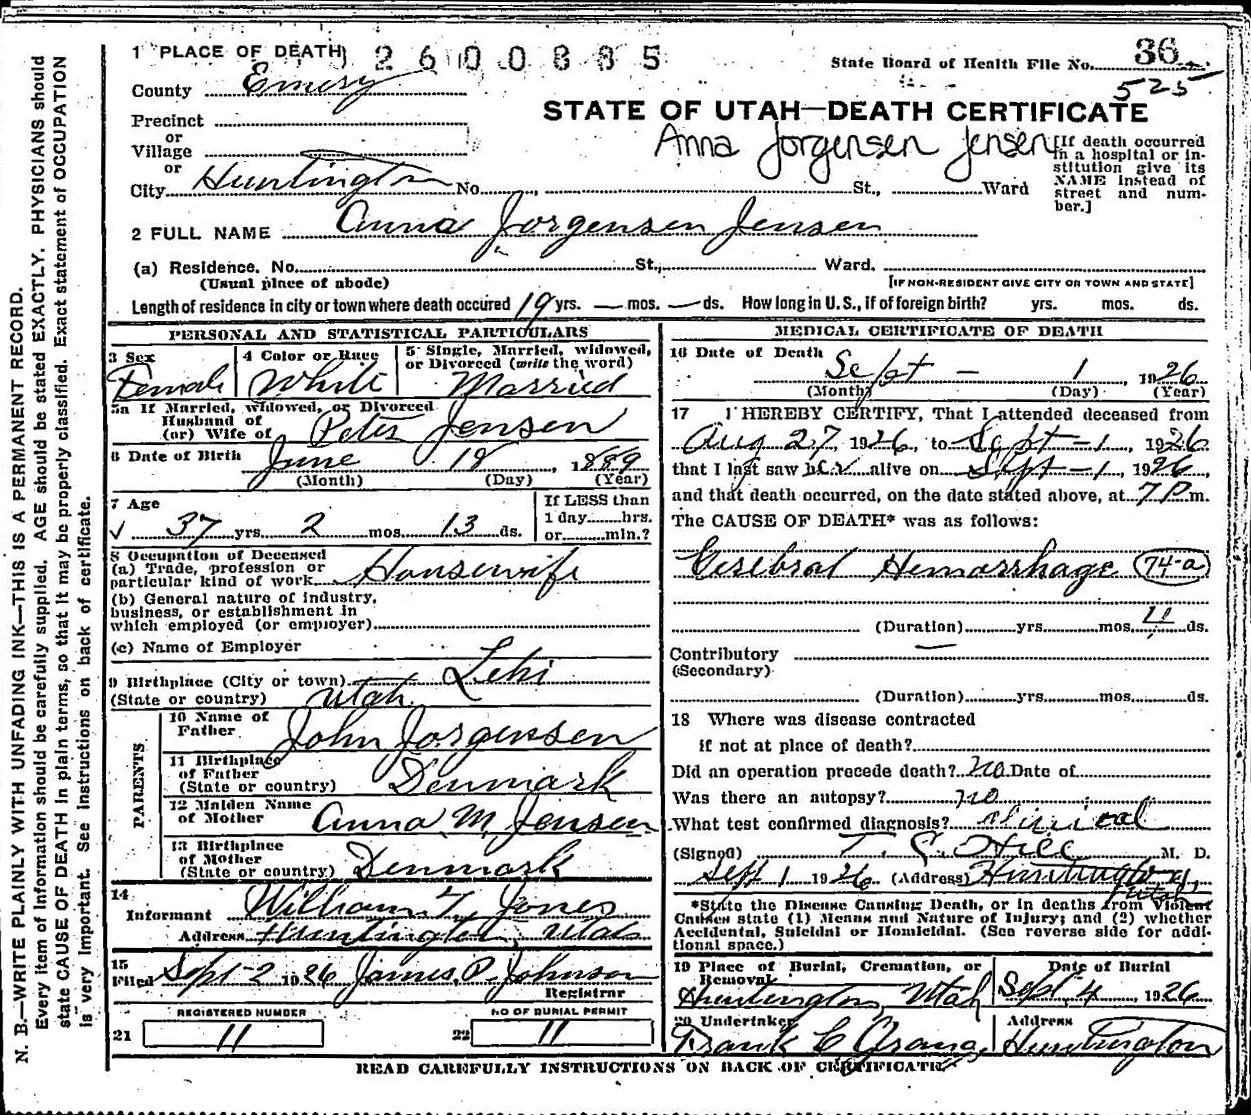 1 PLACE OF DEATH 2600885
State Board of Health File No. 36
525
County Emery
STATE OF UTAH—DEATH CERTIFICATE
Precinct
or
Village
or
Anna Jorgensen Jensen
[If death occurred in a hospital or institution give its NAME instead of street and number.]
City Huntington No. St., Ward
2 FULL NAME Anna Jorgensen Jensen
(a) Residence. No. St., Ward.
(Usual place of abode) [IF NON-RESIDENT GIVE CITY OR TOWN AND STATE]
Length of residence in city or town where death occured 19 yrs. — mos. — ds. How long in U. S., if of foreign birth? yrs. mos. ds.
PERSONAL AND STATISTICAL PARTICULARS
3 Sex
Female
4 Color or Race
White
5 Single, Married, widowed,
or Divorced (write the word)
Married
5a If Married, widowed, or Divorced
Husband of
(or) Wife of Peter Jensen
6 Date of Birth June 18, 1889
(Month) (Day) (Year)
7 Age
37 yrs. 2 mos. 13 ds.
If LESS than
1 day......hrs.
or......min.?
8 Occupation of Deceased
(a) Trade, profession or
particular kind of work Housewife
(b) General nature of industry,
business, or establishment in
which employed (or employer)
(c) Name of Employer
9 Birthplace (City or town) Lehi
(State or country) Utah
PARENTS
10 Name of
Father John Jorgensen
11 Birthplace
of Father
(State or country) Denmark
12 Maiden Name
of Mother Anna M. Jensen
13 Birthplace
of Mother
(State or country) Denmark
14
Informant William T. Jones
Address Huntington, Utah
15
Filed Sept-2 1926 James P. Johnson
Registrar
REGISTERED NUMBER
21 11
NO OF BURIAL PERMIT
22 11
MEDICAL CERTIFICATE OF DEATH
16 Date of Death Sept — 1, 1926
(Month) (Day) (Year)
17 I HEREBY CERTIFY, That I attended deceased from
Aug 27, 1926, to Sept-1, 1926
that I last saw her alive on Sept-1, 1926,
and that death occurred, on the date stated above, at 7 P m.
The CAUSE OF DEATH* was as follows:
Cerebral Hemorrhage 74-a
(Duration) yrs. mos. ds.
Contributory —
(Secondary)
(Duration) yrs. mos. ds.
18 Where was disease contracted
if not at place of death?
Did an operation precede death? No. Date of
Was there an autopsy? no
What test confirmed diagnosis? clinical
(Signed) T. C. Hill M. D.
Sept 1 1926 (Address) Huntington, Utah
*State the Disease Causing Death, or in deaths from Violent
Causes state (1) Means and Nature of Injury; and (2) whether
Accidental, Suicidal or Homicidal. (See reverse side for additional space.)
19 Place of Burial, Cremation, or
Removal
Huntington, Utah
Date of Burial
Sept 4, 1926
20 Undertaker
Frank C
Address
Huntington
READ CAREFULLY INSTRUCTIONS ON BACK OF CERTIFICATE
N. B.—WRITE PLAINLY WITH UNFADING INK—THIS IS A PERMANENT RECORD.
Every item of information should be carefully supplied. AGE should be stated EXACTLY. PHYSICIANS should
state CAUSE OF DEATH in plain terms, so that it may be properly classified. Exact statement of OCCUPATION
is very important. See instructions on back of certificate.